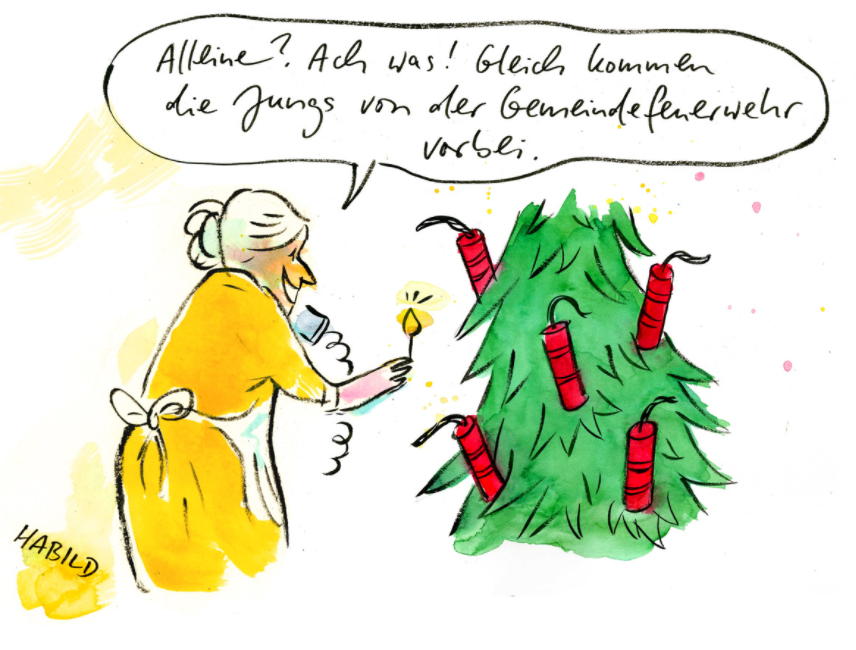 Alleine? Ach was! Gleich kommen
die Jungs von der Gemeindefeuerwehr
vorbei.
HABILD